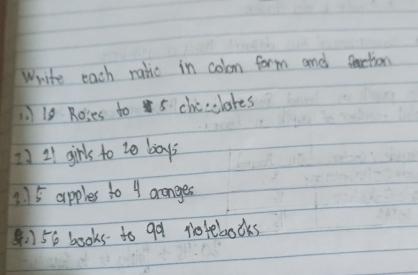 Write each ratio in colon form and fraction
1.) 10 Roses to 5 chocolates
2.) 21 girls to 20 boys
3.) 5 apples to 4 oranges
4.) 56 books to 99 notebooks